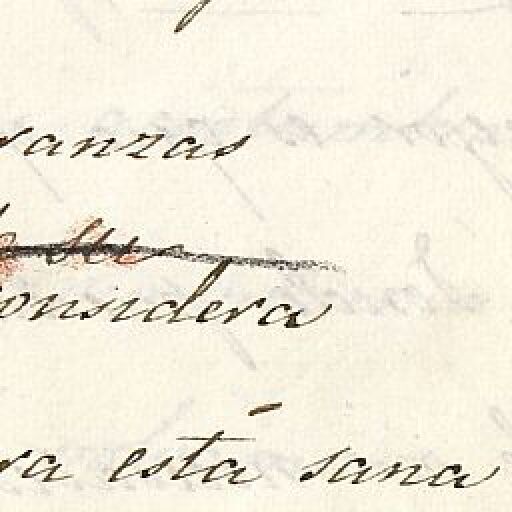 ranzas
su
onsidera
ra está sana